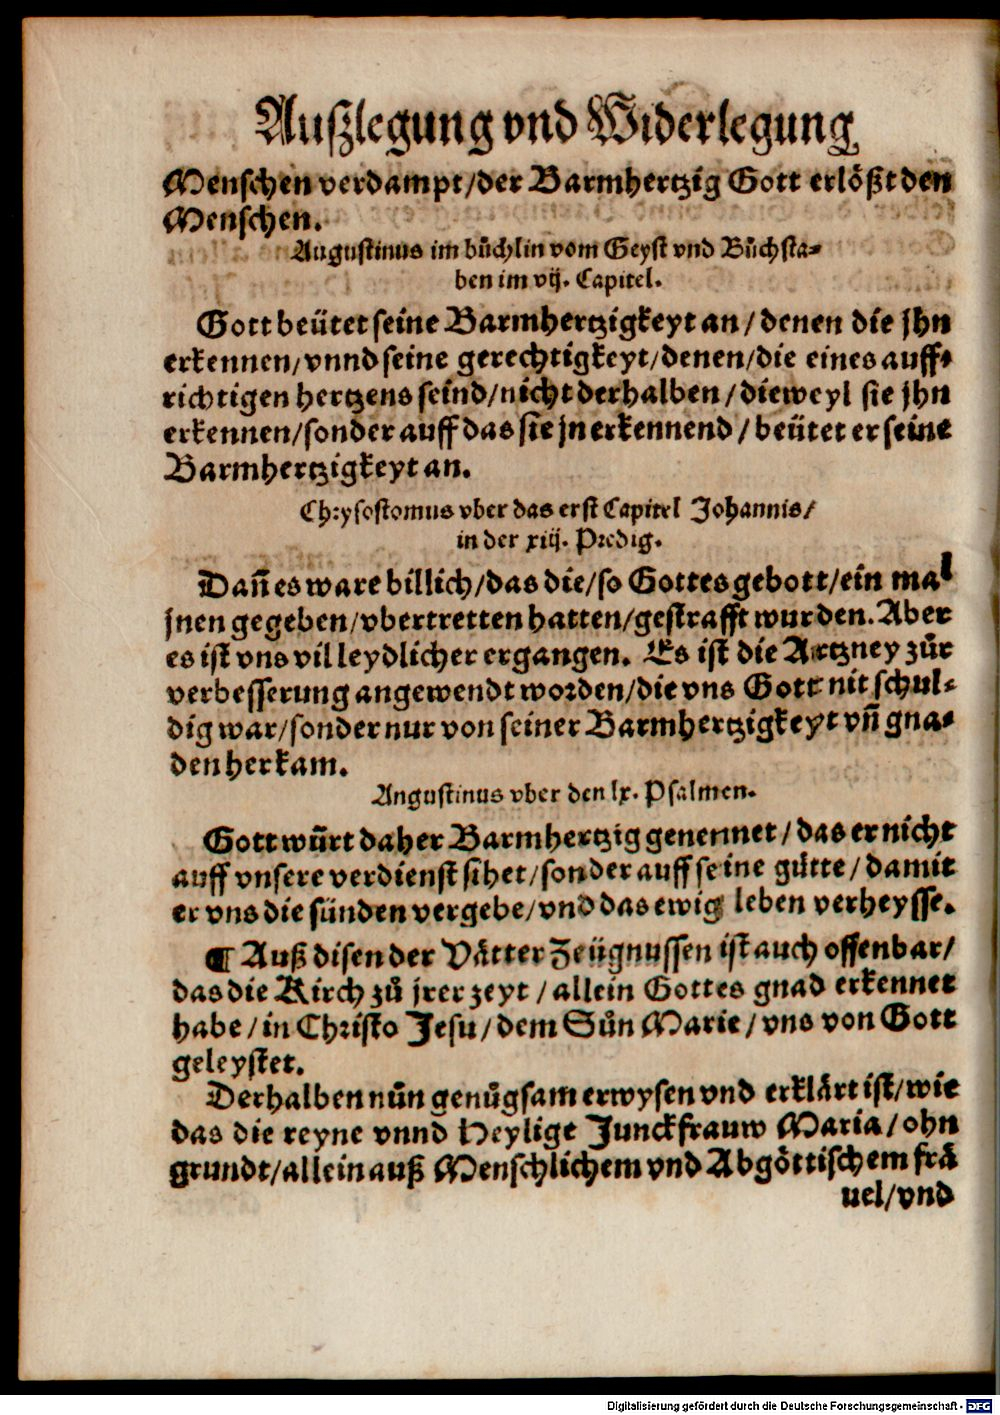 Außlegung vnd Widerlegung
Menschen verdampt/der Barmhertzig Gott erlößt den
Menschen.
Augustinus im bůchlin vom Geyst vnd Bůchsta-
ben im vij. Capitel.
Gott beütet seine Barmhertzigkeyt an/denen die jhn
erkennen/vnnd seine gerechtigkeyt/denen/die eines auff-
richtigen hertzens seind/nicht derhalben/dieweyl sie jhn
erkennen/sonder auff das sie jn erkennend/beütet er seine
Barmhertzigkeyt an.
Chrysostomus vber das erst Capitel Johannis/
in der xiij. Predig.
Dañ es ware billich/das die/so Gottes gebott/ein mal
jnen gegeben/vbertretten hatten/gestrafft wurden. Aber
es ist vns vil leydlicher ergangen. Es ist die Artzney zůr
verbesserung angewendt worden/die vns Gott nit schul-
dig war/sonder nur von seiner Barmhertzigkeyt vñ gna-
den herkam.
Angustinus vber den lx. Psalmen.
Gott würt daher Barmhertzig genennet/das er nicht
auff vnsere verdienst sihet/sonder auff seine gütte/damit
er vns die sünden vergebe/vnd das ewig leben verheysse.
¶ Auß disen der Vätter Zeügnussen ist auch offenbar/
das die Kirch zů jrer zeyt/allein Gottes gnad erkennet
habe/in Christo Jesu/dem Sůn Marie/vns von Gott
geleystet.
Derhalben nůn genůgsam erwysen vnd erklärt ist/wie
das die reyne vnnd Heylige Junckfrauw Maria/ohn
grundt/allein auß Menschlichem vnd Abgöttischem frä
uel/vnd
Digitalisierung gefördert durch die Deutsche Forschungsgemeinschaft - DFG